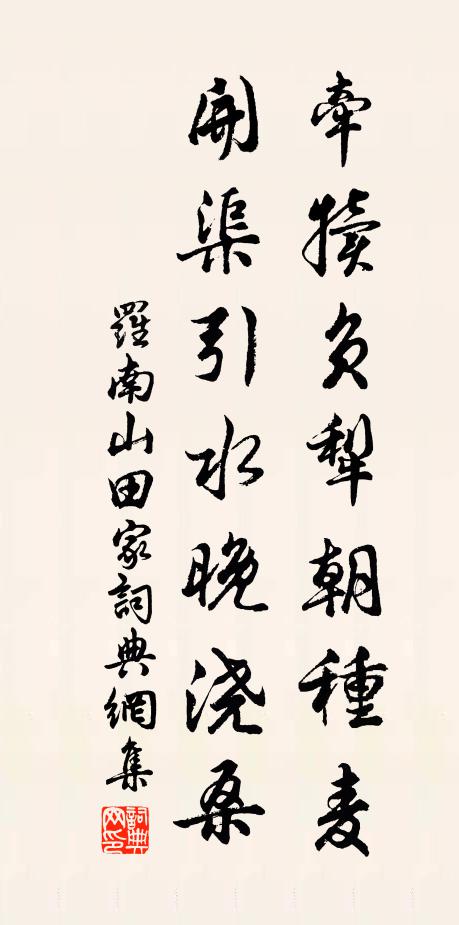 牵犊负犁朝種麦
開渠引水晚浇桑
羅南山田家詞典網集
詞典網印